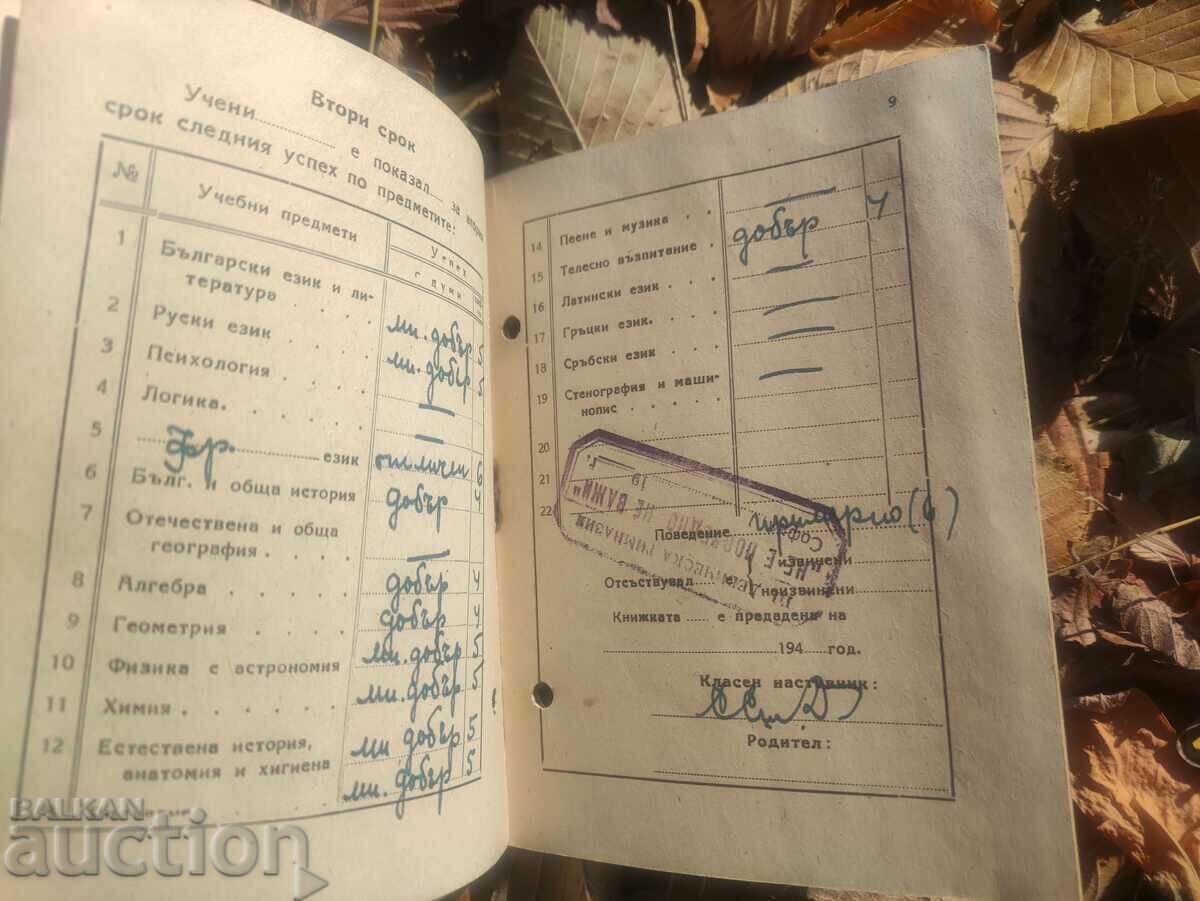 Втори срок
Учени........... е показал.... за втория
срок следния успех по предметите:
№ Учебни предмети Успех
с думи
1 Български език и ли-
тература . . . мн. добър 5
2 Руски език . . . . мн. добър 5
3 Психология . . . . —
4 Логика. . . . . . —
5 Фр. език отличен 6
6 Бълг. и обща история добър 4
7 Отечествена и обща
география . . . . —
8 Алгебра . . . . . добър 4
9 Геометрия . . . . добър 4
10 Физика с астрономия мн. добър 5
11 Химия . . . . . . мн. добър 5
12 Естествена история, мн добър 5
анатомия и хигиена мн. добър 5
9
14 Пеене и музика . . —
15 Телесно възпитание . добър 4
16 Латински език . . —
17 Гръцки език. . . . —
18 Сръбски език . . . —
19 Стенография и маши- —
нопис . . . . .
20
21
22
Поведение примерно (6)
извинени
Отсъствувал неизвинени
Книжката ..... е предадена на
194 год.
Класен наставник:
Родител:
19 г.
НЕ Е ПОДВЕДНО НЕ ВАЖИ"
ГИМНАЗИЯ
Соф
BALKAN
auction